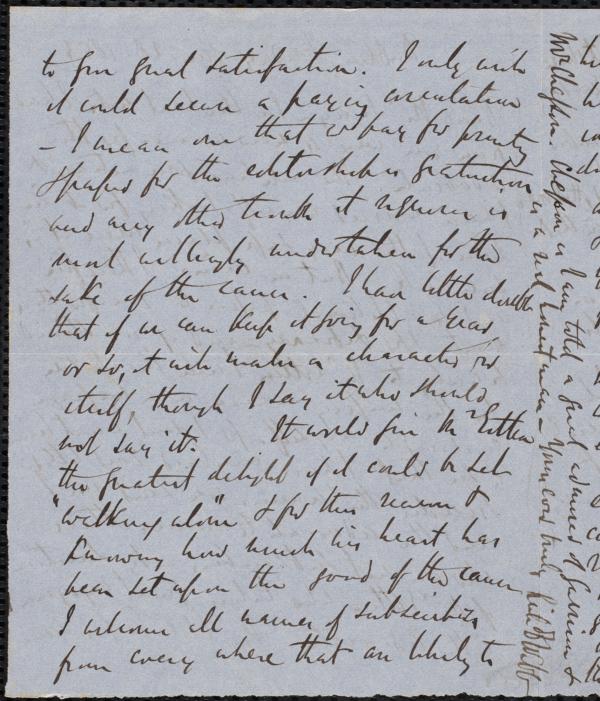 to give great satisfaction. I only wish
it could secure a paying circulation
- I mean one that wd pay for printg
& paper for the editorship is gratuitous
and any other trouble it requires is
most willingly undertaken for the
sake of the cause. I have little doubt
that if we can keep it going for a year
or so, it will make a character for
itself, though I say it who should
not say it. It would give Mr Estlin
the greatest delight if it could be set
"walking alone" & for this reason &
knowing how much his heart has
been set upon the good of the cause
I welcome all names of subscribers
from every where that are likely to
Mr Chesson. Chesson is I am told a great admirer of Garrison &
is a real honest man - Yours cord truly Rich D Webb